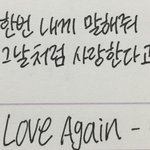 한번 내게 말해줘
그날처럼 사랑한다고
Love Again -